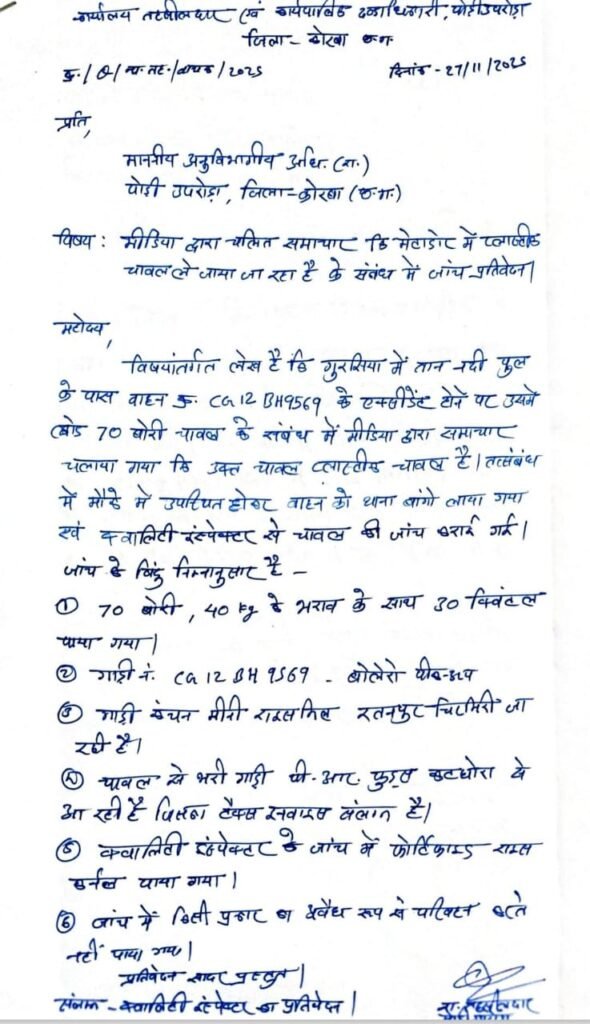 कार्यालय तहसीलदार एवं कार्यपालिक दण्डाधिकारी, पोड़ी उपरोड़ा
जिला - कोरबा छ.ग.
क्र./ /ना.तह./वाचक/2025 दिनांक - 27/11/2025
प्रति,
माननीय अनुविभागीय अधि. (रा.)
पोड़ी उपरोड़ा, जिला - कोरबा (छ.ग.)
विषय : मीडिया द्वारा चलित समाचार कि मेटाडोर में प्लास्टीक
चावल ले जाया जा रहा है के संबंध में जांच प्रतिवेदन।
महोदय,
विषयांतर्गत लेख है कि गुरसिया में तान नदी पुल
के पास वाहन क्र. CG 12 BH 9569 के एक्सीडेंट होने पर उसमें
लोड 70 बोरी चावल के संबंध में मीडिया द्वारा समाचार
चलाया गया कि उक्त चावल प्लास्टीक चावल है। तत्संबंध
में मौके में उपस्थित होकर वाहन को थाना बांगो लाया गया
एवं क्वालिटी इंस्पेक्टर से चावल की जांच कराई गई।
जांच के बिंदु निम्नानुसार है -
① 70 बोरी, 40 kg के भराव के साथ 30 क्विंटल
पाया गया।
② गाड़ी नं. CG 12 BH 9569 - बोलेरो पीक-अप
③ गाड़ी कंचन मीरी राइसमिल रतनपुर चिरमिरी जा
रही है।
④ चावल से भरी गाड़ी पी.आर. फुड्स कटघोरा से
आ रही है जिसका टैक्स इनवाइस संलग्न है।
⑤ क्वालिटी इंस्पेक्टर के जांच में फोर्टिफाइड राइस
कर्नल पाया गया।
⑥ जांच में किसी प्रकार का अवैध रूप से परिवहन करते
नहीं पाया गया।
प्रतिवेदन सादर प्रस्तुत।
संलग्न - क्वालिटी इंस्पेक्टर का प्रतिवेदन। ना. तहसीलदार